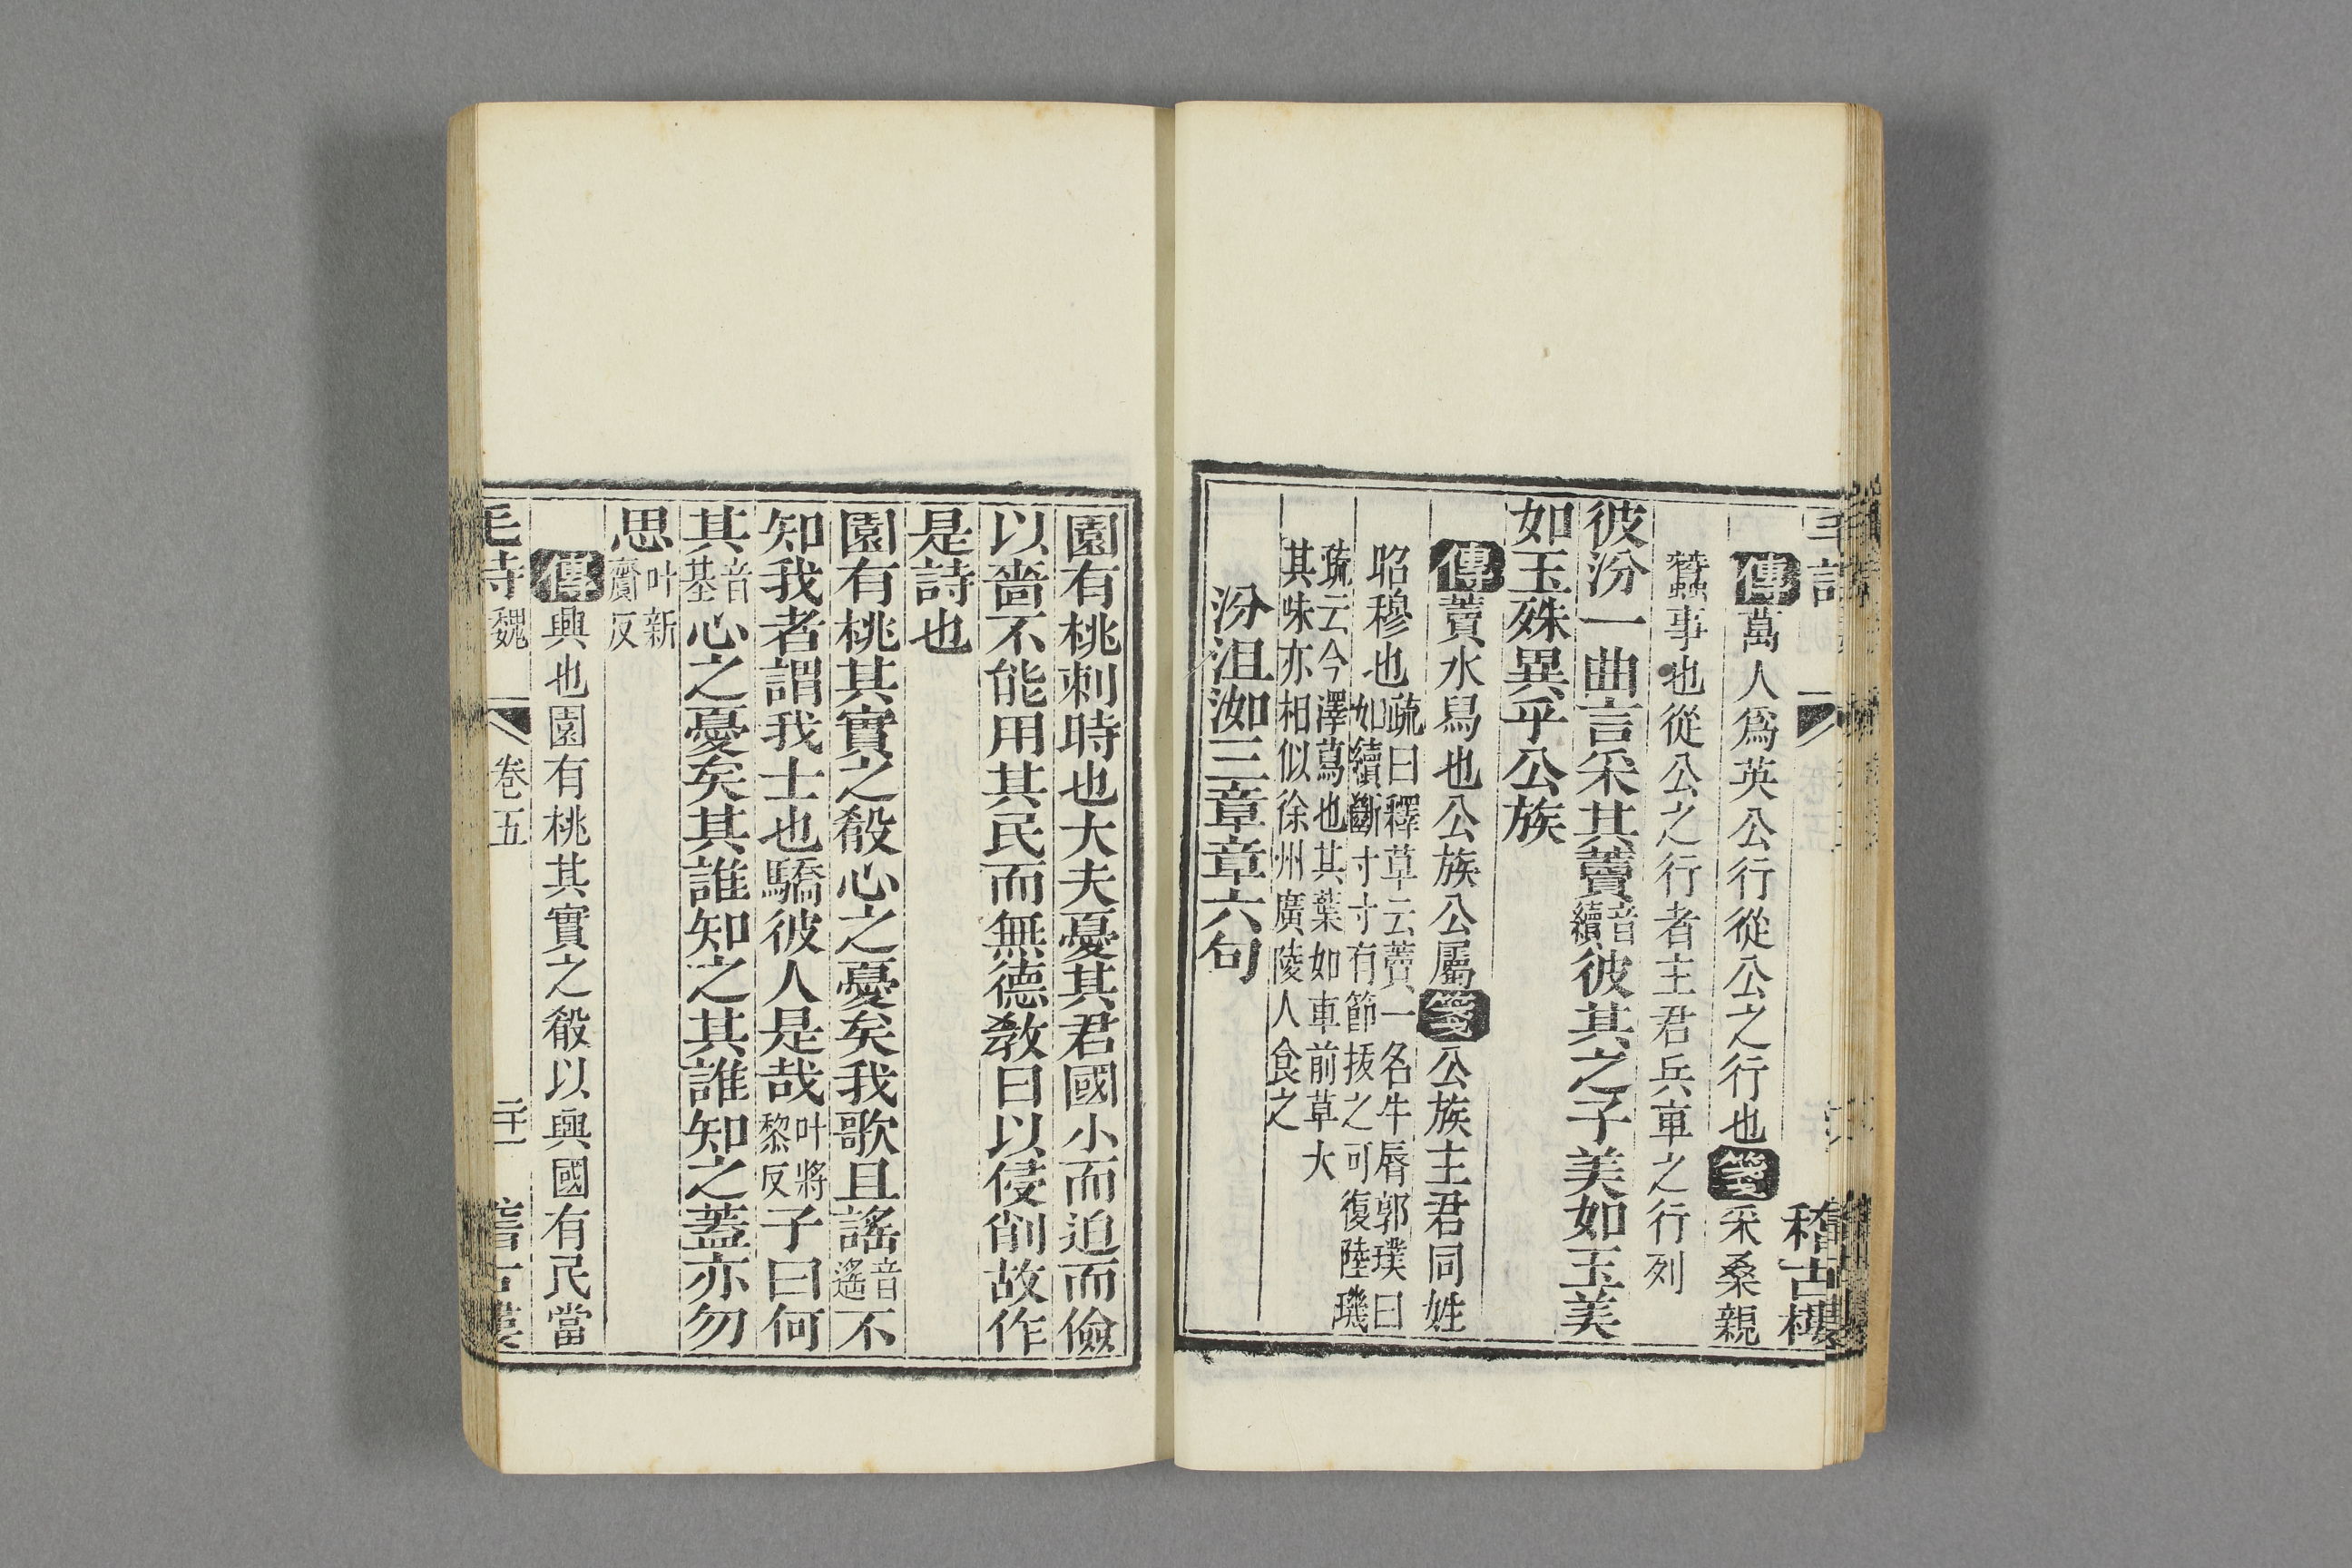 稽古樓
傳萬人爲英公行從公之行也箋采桑親
蠶事也從公之行者主君兵車之行列
彼汾一曲言采其藚音續彼其之子美如玉美
如玉殊異乎公族
傳藚水舄也公族公屬箋公族主君同姓
昭穆也疏曰釋草云藚一名牛脣郭璞曰
如續斷寸寸有節拔之可復陸璣
疏云今澤蔿也其葉如車前草大
其味亦相似徐州廣陵人食之
汾沮洳三章章六句
園有桃刺時也大夫憂其君國小而迫而儉
以嗇不能用其民而無德敎日以侵削故作
是詩也
園有桃其實之殽心之憂矣我歌且謠音遙不
知我者謂我士也驕彼人是哉叶將黎反子曰何
其音基心之憂矣其誰知之其誰知之蓋亦勿
思叶新齎反
傳興也園有桃其實之殽以興國有民當
毛詩 魏 卷五 二十一